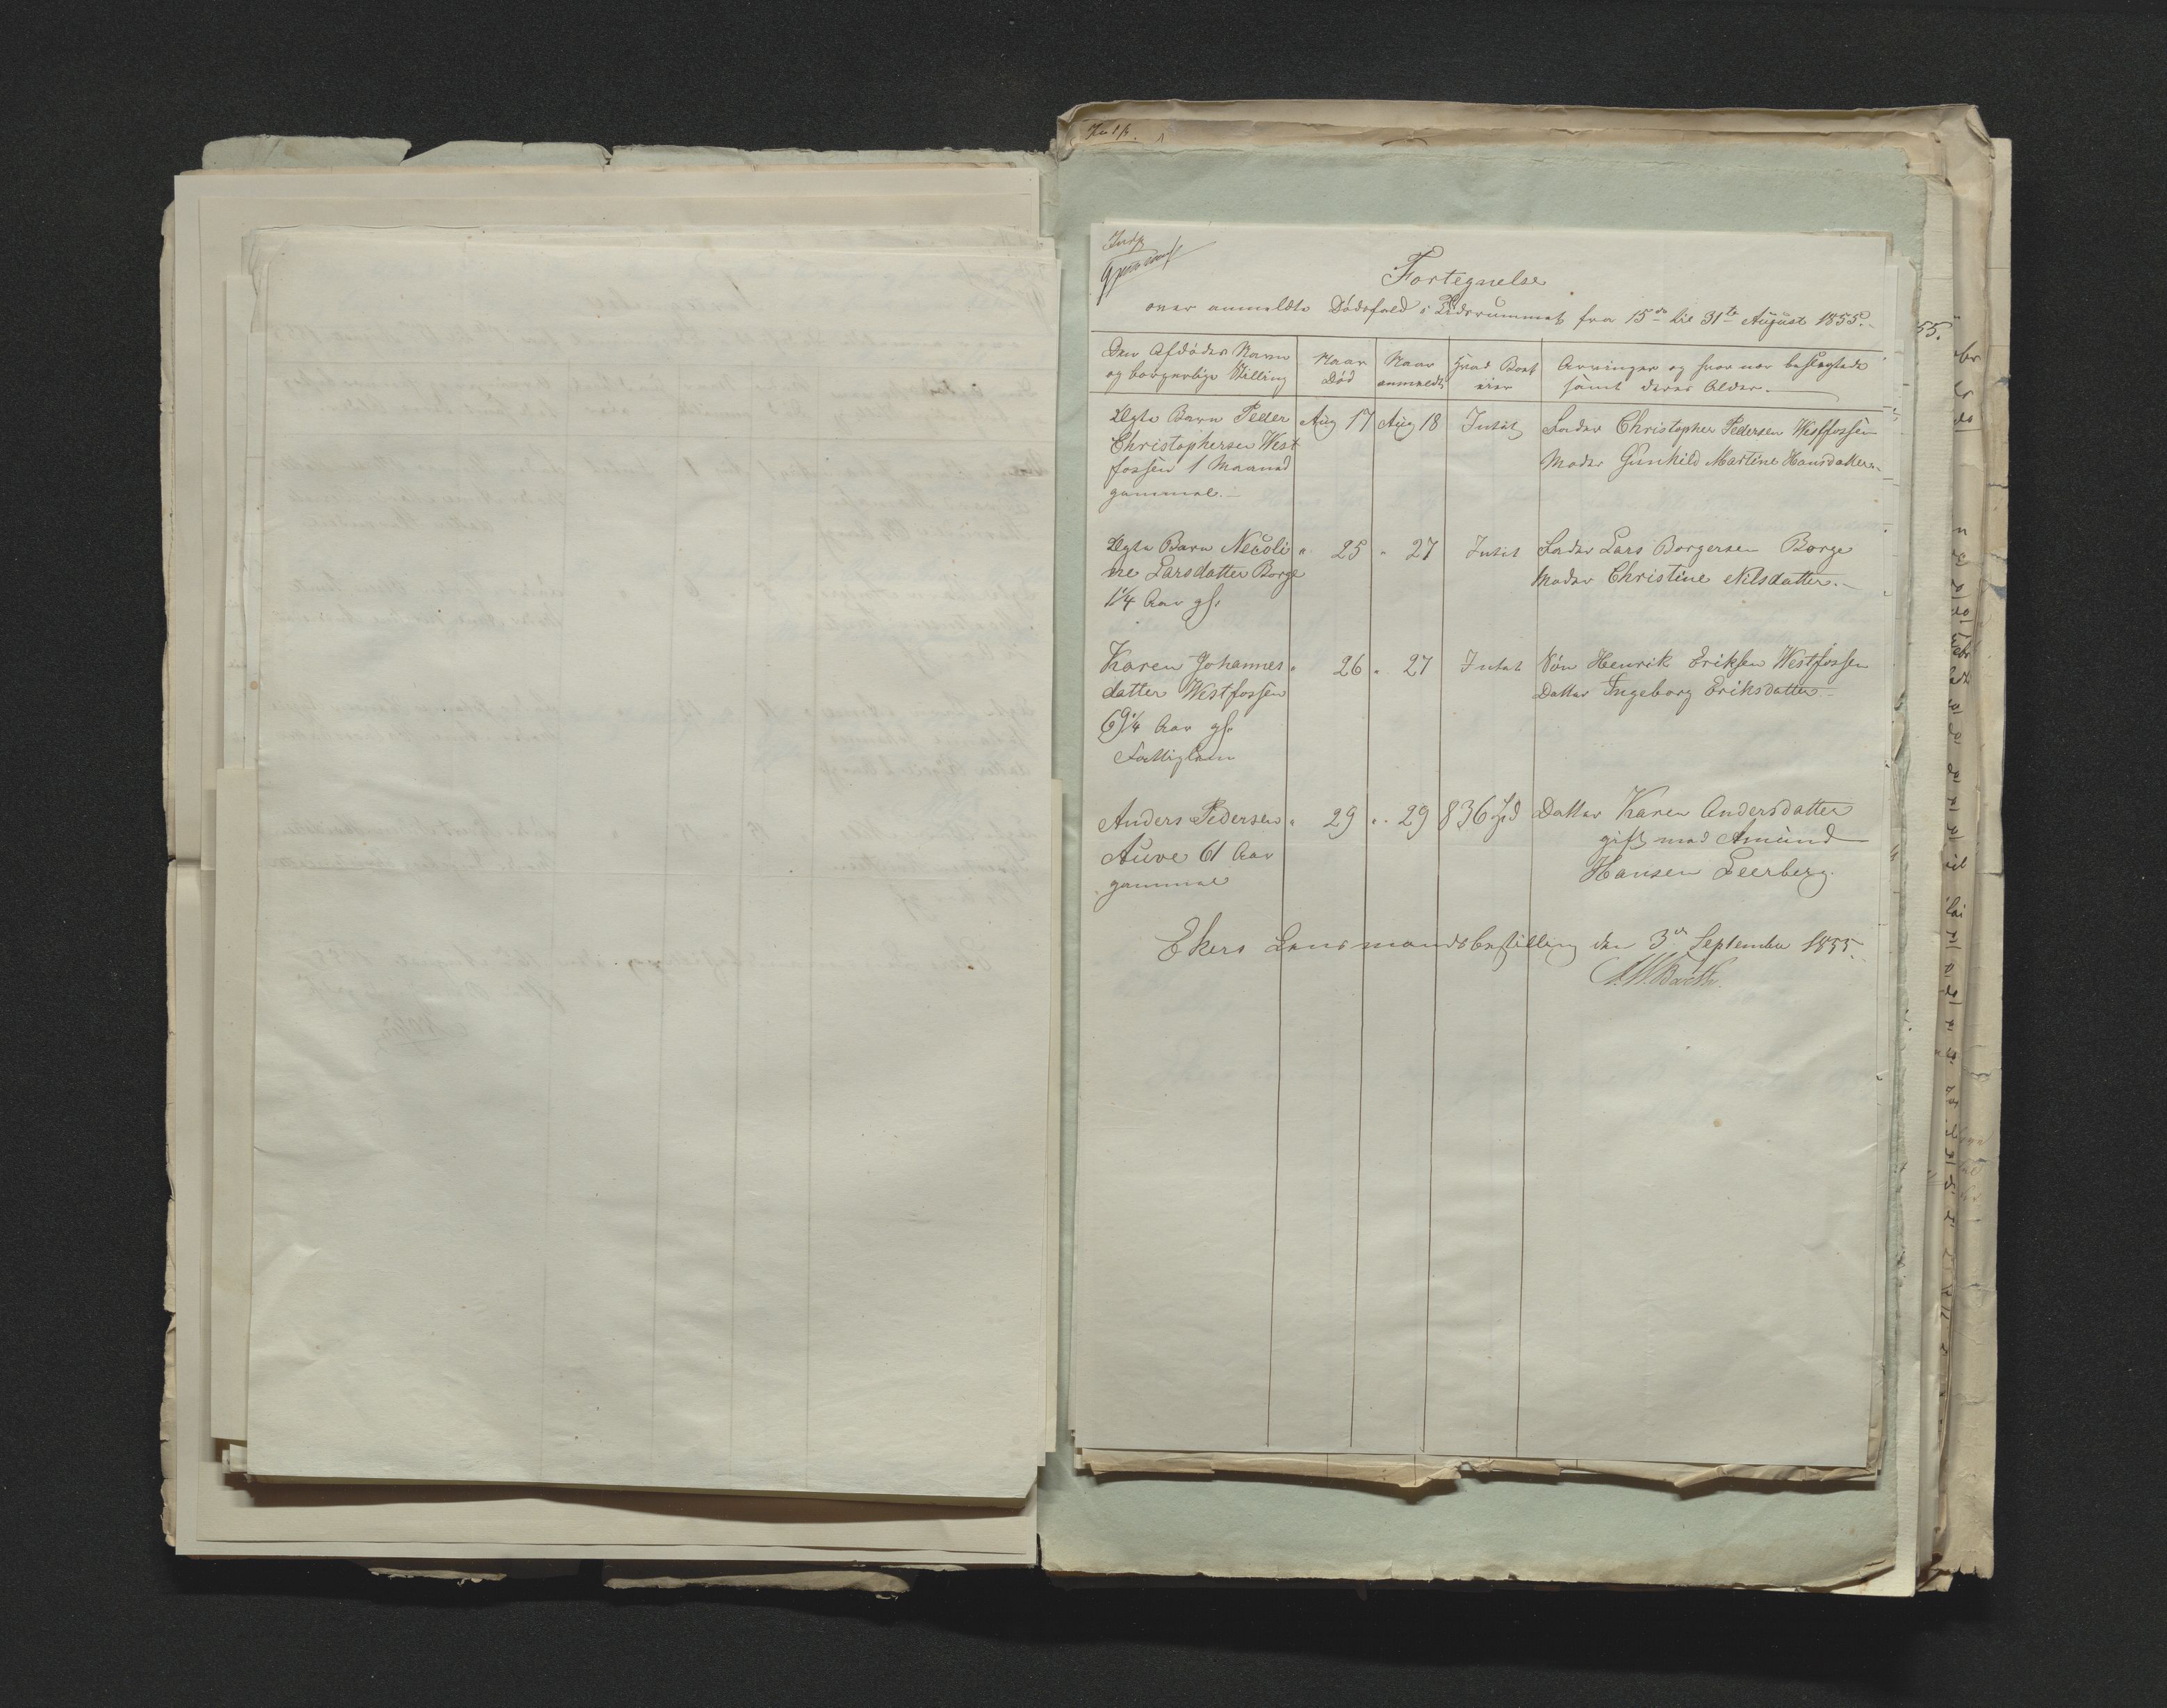 Fortegnelse
over anmeldte Dødsfald i Tidsrummet fra 15de til 31te August 1855.
Den Afdødes Navn og borgerlige Stilling
Naar Død
Naar anmeldt
Hvad Boet eier
Arvinger og hvor nær beslægtede samt deres Alder.
Ægte Barn Peder Aug 17 Aug 18 Intet Fader Christopher Pedersen Westfossen
Christophersen West
fossen 1 Maaned Moder Gunhild Martine Hansdatter.
gammel.
Ægte Barn Necoli " 25 " 27 Intet Fader Lars Borgersen Borge
ne Larsdatter Borge Moder Christine Nilsdatter.
1 1/4 Aar gl.
Karen Johannes " 26 " 27 Intet Søn Henrik Eriksen Westfossen
datter Westfossen Datter Ingeborg Eriksdatter
69 1/4 Aar gl.
Fattiglem
Anders Pedersen " 29 " 29 836 Datter Karen Andersdatter
Auve 61 Aar gift med Amund
gammel Hansen Leerberg.
Ekers Lensmandsbestilling den 3de September 1855.
Barth.
55.